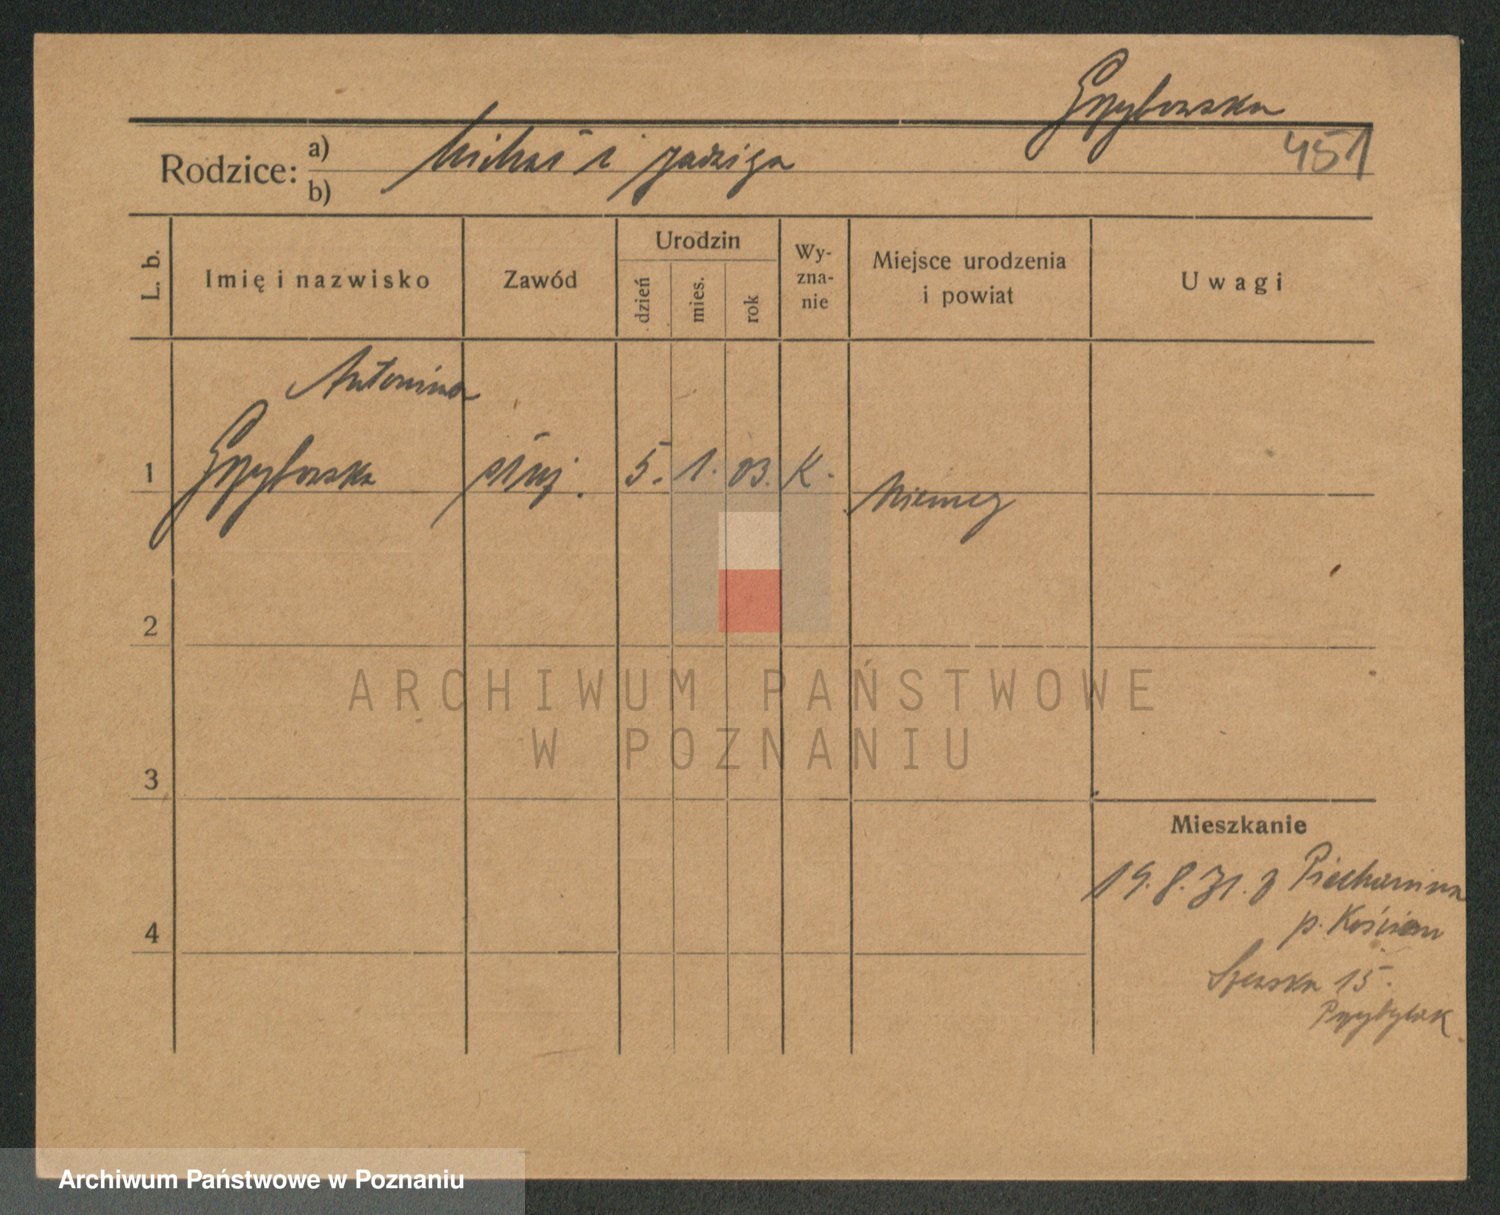 Grzybowska
451
Rodzice: a) Michał i Jadwiga
b)
L. b.
Imię i nazwisko
Zawód
Urodzin
dzień
mies.
rok
Wy-
zna-
nie
Miejsce urodzenia
i powiat
Uwagi
Antonina
1 Grzybowska służ. 5. 1. 03. K. Niemcy
2
3
4
Mieszkanie
19.8.31. z Piechanina
p. Kościan
15.
Przybylak
ARCHIWUM PAŃSTWOWE
W POZNANIU
Archiwum Państwowe w Poznaniu